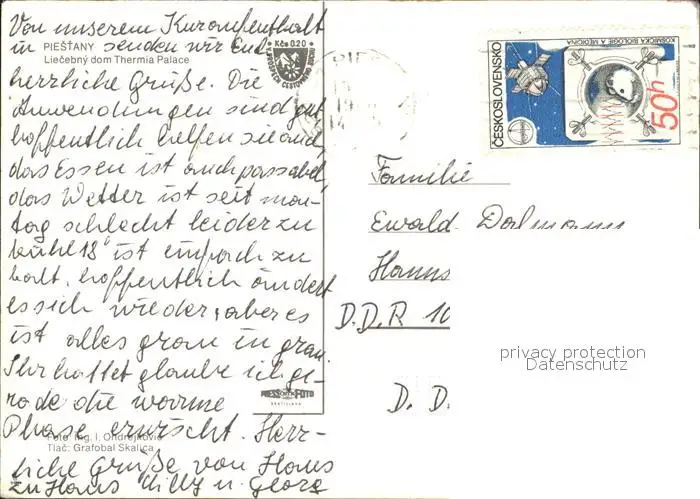 Von unserem Kuraufenthalt
in PIEŠŤANY senden wir Euch
Liečebný dom Thermia Palace
herrliche Grüße. Die
Anwendungen sind gut
hoffentlich helfen sie auch,
das Essen ist auch passabel,
das Wetter ist seit Mon-
tag schlecht leider zu
kühl 18° ist einfach zu
kalt, hoffentlich ändert
es sich wieder, aber es
ist alles grau in grau
Ihr hattet glaube ich ge-
rade die warme
Phase erwischt. Herz-
Foto: Ing. I. Ondrejkovič
Tlač: Grafobal Skalica
liche Grüße von Haus
zu Haus Willy u. Georg
Kčs 0,20
PRESSFOTO
BRATISLAVA
ČESKOSLOVENSKO
KOSMICKÁ BIOLOGIE A MEDICINA
50h
Familie
Ewald Dalmann
Hanns
D.D.R 10
D. D.
privacy protection
Datenschutz